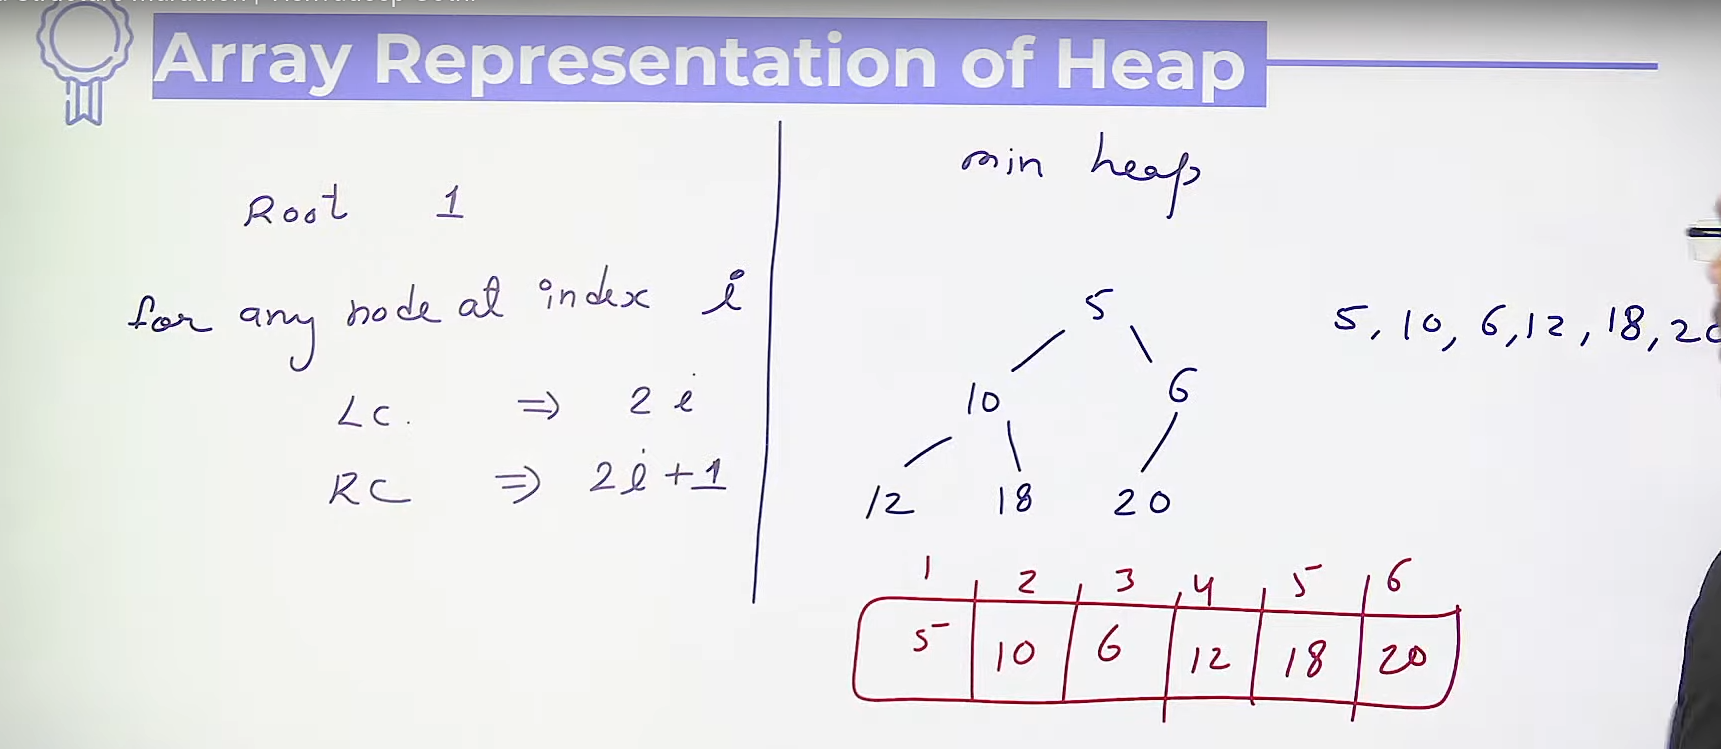 Array Representation of Heap
Root 1
for any node at index i
LC. ⇒ 2i
RC ⇒ 2i+1
min heap
5
10 6
12 18 20
5, 10, 6, 12, 18, 20
1 2 3 4 5 6
5 10 6 12 18 20